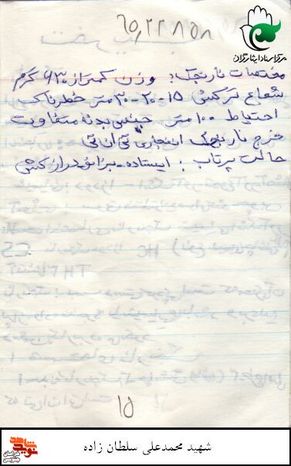 ۶۵٫۲۲۸۵۸
مرکز اسناد ایثارگران
مشخصات نارنجک: وزن کمتر از ۶۳۰ گرم
شعاع ترکش ۱۵-۲۰-۳۰ متر خطرناک
احتیاط ۱۰۰ متر جنس بدنه متفاوت
خرج نارنجک انفجاری تی ان تی
حالت پرتاب: ایستاده-بزانو-درازکش
۱۵
شهید محمدعلی سلطان زاده